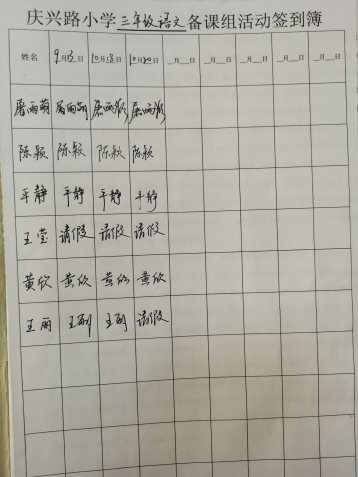 庆兴路小学三年级语文备课组活动签到簿
姓名 9月13日 10月18日 10月20日 __月__日 __月__日 __月__日 __月__日 __月__日
屠雨萌 屠雨萌
陈颖 陈颖 陈颖 陈颖
平静 平静 平静 平静
王莹 请假 请假 请假
黄欣 黄欣 黄欣 黄欣
王丽 王丽 王丽 请假